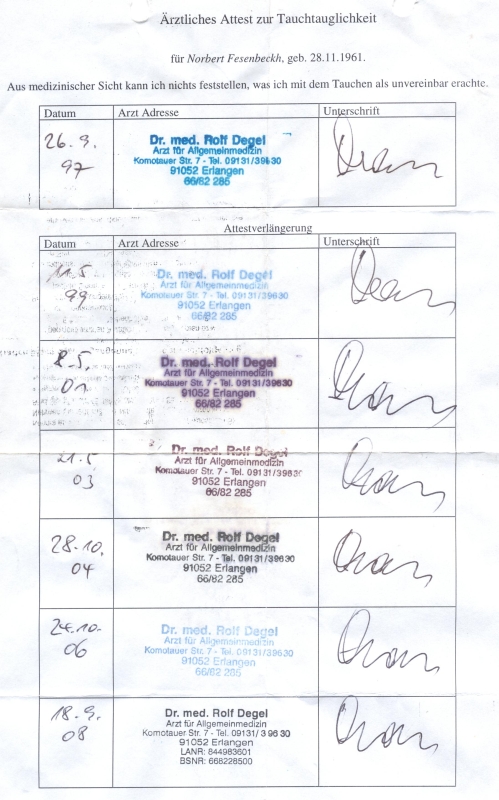 Ärztliches Attest zur Tauchtauglichkeit
für Norbert Fesenbeckh, geb. 28.11.1961.
Aus medizinischer Sicht kann ich nichts feststellen, was ich mit dem Tauchen als unvereinbar erachte.
Datum Arzt Adresse Unterschrift
26.9.
97
Dr. med. Rolf Degel
Arzt für Allgemeinmedizin
Komotauer Str. 7 - Tel. 09131/39630
91052 Erlangen
66/82 285
Attestverlängerung
Datum Arzt Adresse Unterschrift
11.5
99
Dr. med. Rolf Degel
Arzt für Allgemeinmedizin
Komotauer Str. 7 - Tel. 09131/39630
91052 Erlangen
66/82 285
8.5.
01
Dr. med. Rolf Degel
Arzt für Allgemeinmedizin
Komotauer Str. 7 - Tel. 09131/39630
91052 Erlangen
66/82 285
21.5
03
Dr. med. Rolf Degel
Arzt für Allgemeinmedizin
Komotauer Str. 7 - Tel. 09131/39630
91052 Erlangen
66/82 285
28.10.
04
Dr. med. Rolf Degel
Arzt für Allgemeinmedizin
Komotauer Str. 7 - Tel. 09131/39630
91052 Erlangen
66/82 285
24.10.
06
Dr. med. Rolf Degel
Arzt für Allgemeinmedizin
Komotauer Str. 7 - Tel. 09131/39630
91052 Erlangen
66/82 285
18.9.
08
Dr. med. Rolf Degel
Arzt für Allgemeinmedizin
Komotauer Str. 7 - Tel. 09131/ 3 96 30
91052 Erlangen
LANR: 844983601
BSNR: 668228500